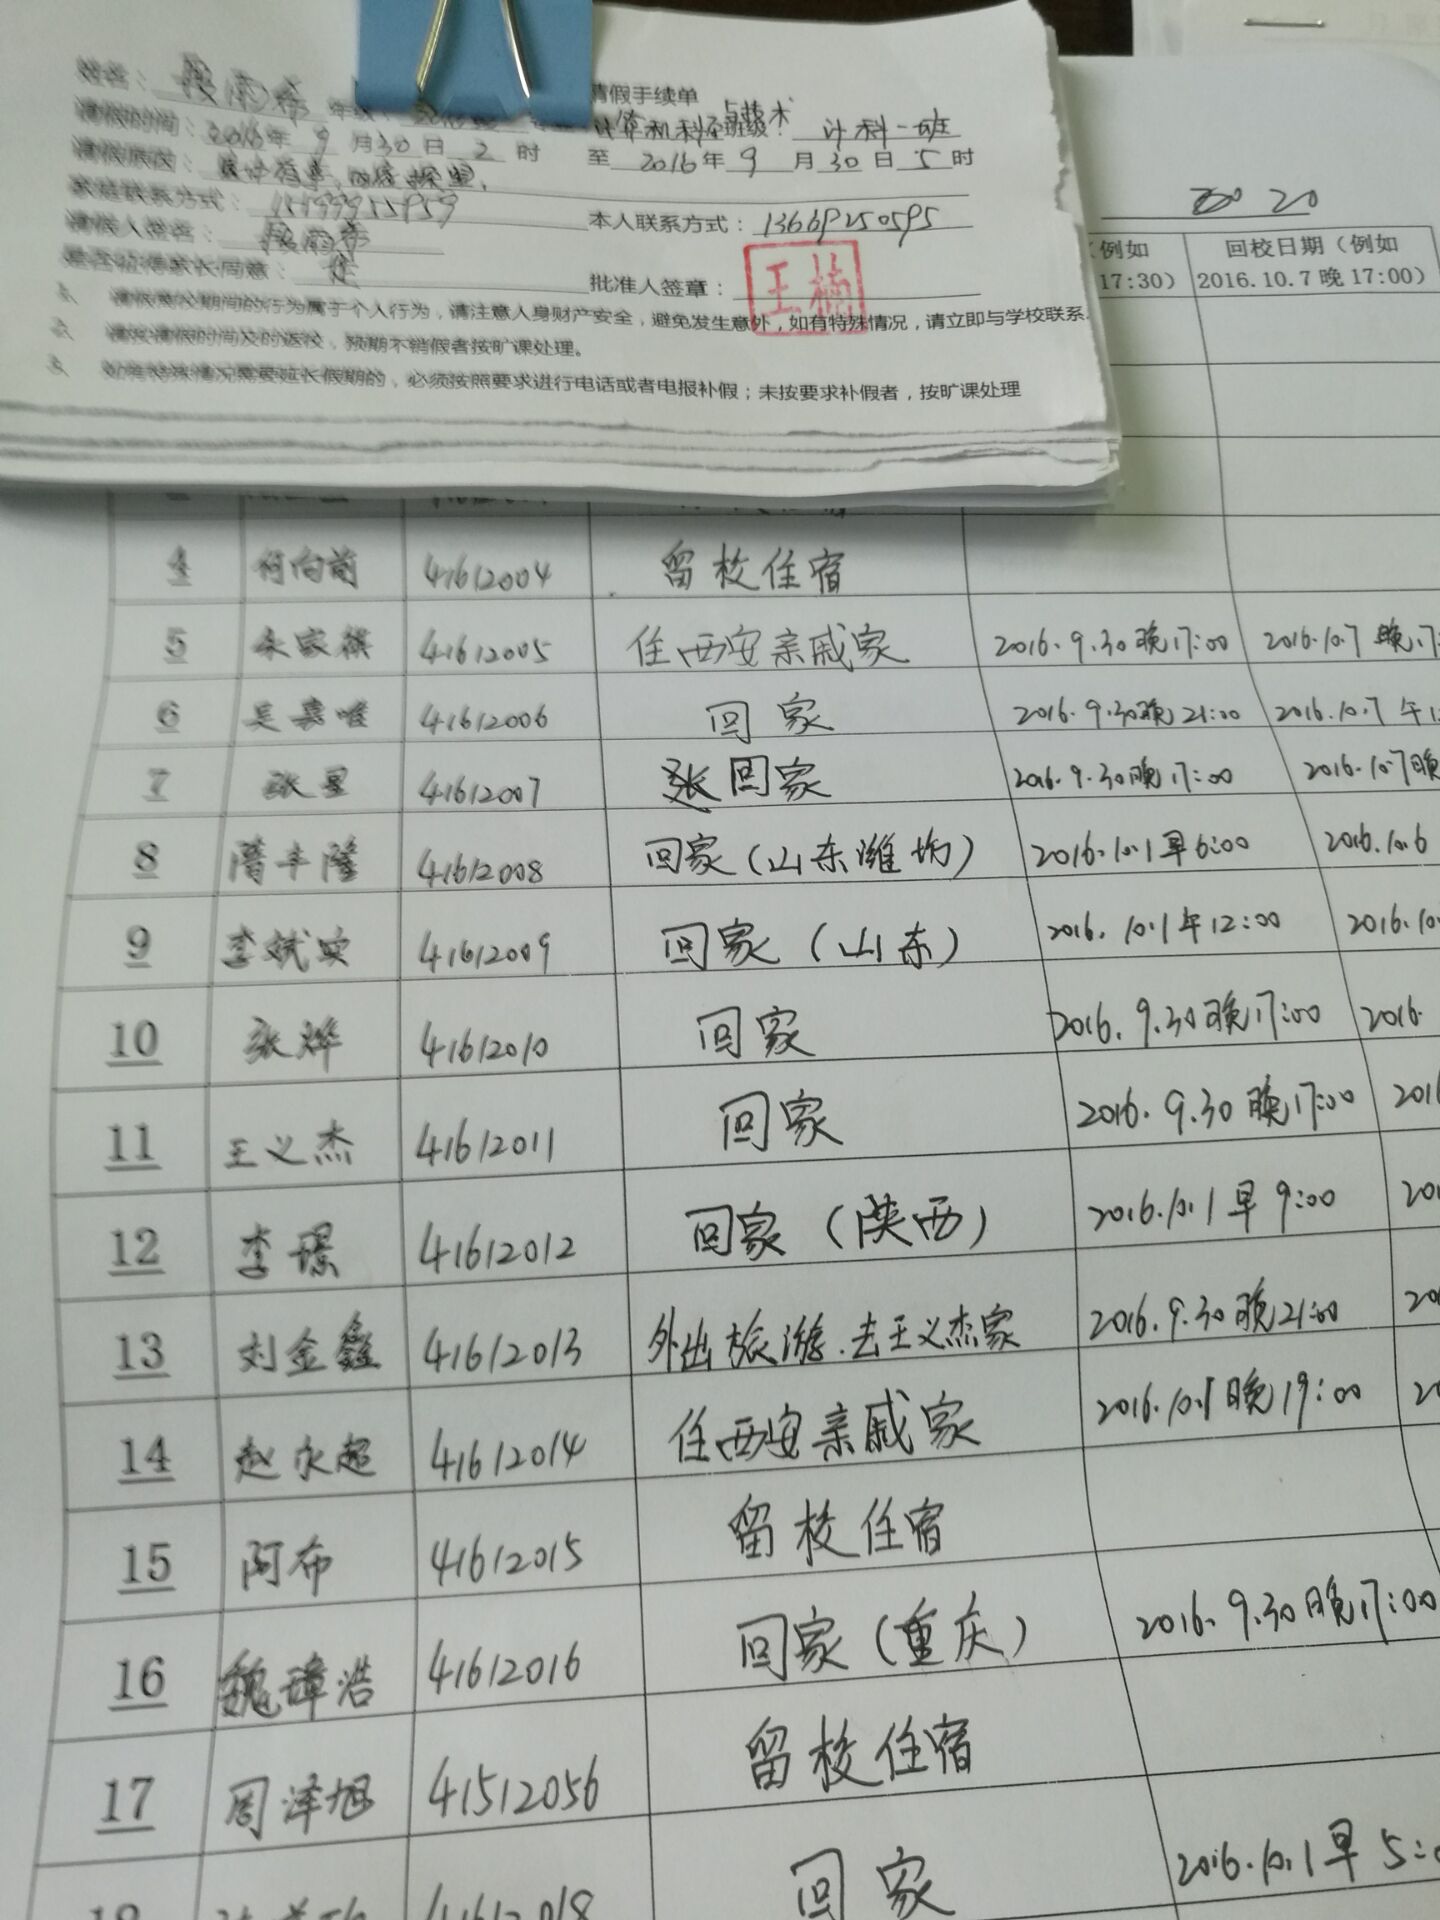 请假手续单
姓名： 年级： 计算机科学与技术 班级： 计科一班
请假时间：2016年9月30日2时 至2016年9月30日5时
请假原因：
家庭联系方式：
本人联系方式：13669250595
请假人签名：
是否征得家长同意：是
批准人签章： 王楠
1、 请假离校期间的行为属于个人行为，请注意人身财产安全，避免发生意外，如有特殊情况，请立即与学校联系。
2、 请按请假时间及时返校，预期不销假者按旷课处理。
3、 如有特殊情况需要延长假期的，必须按照要求进行电话或者电报补假；未按要求补假者，按旷课处理
20
（例如 17:30） 回校日期（例如 2016.10.7晚17:00）
4 何向前 41612004 留校住宿
5 家祺 41612005 住西安亲戚家 2016.9.30晚17:00 2016.10.7晚17:
6 吴嘉唯 41612006 回家 2016.9.30晚21:00 2016.10.7午1
7 张星 41612007 张回家 2016.9.30晚17:00 2016.10.7晚
8 隆 41612008 回家（山东潍坊） 2016.10.1早6:00 2016.10.6
9 李斌 41612009 回家（山东） 2016.10.1午12:00 2016.10
10 张烨 41612010 回家 2016.9.30晚17:00 2016.
11 王义杰 41612011 回家 2016.9.30晚17:00 201
12 李璟 41612012 回家（陕西） 2016.10.1早9:00 20
13 刘金鑫 41612013 外出旅游.去王义杰家 2016.9.30晚21:00 20
14 赵永超 41612014 住西安亲戚家 2016.10.1晚19:00 2
15 阿布 41612015 留校住宿
16 魏璋浩 41612016 回家（重庆） 2016.9.30晚17:00
17 周泽旭 41512056 留校住宿
18 41612018 回家 2016.10.1早5:0